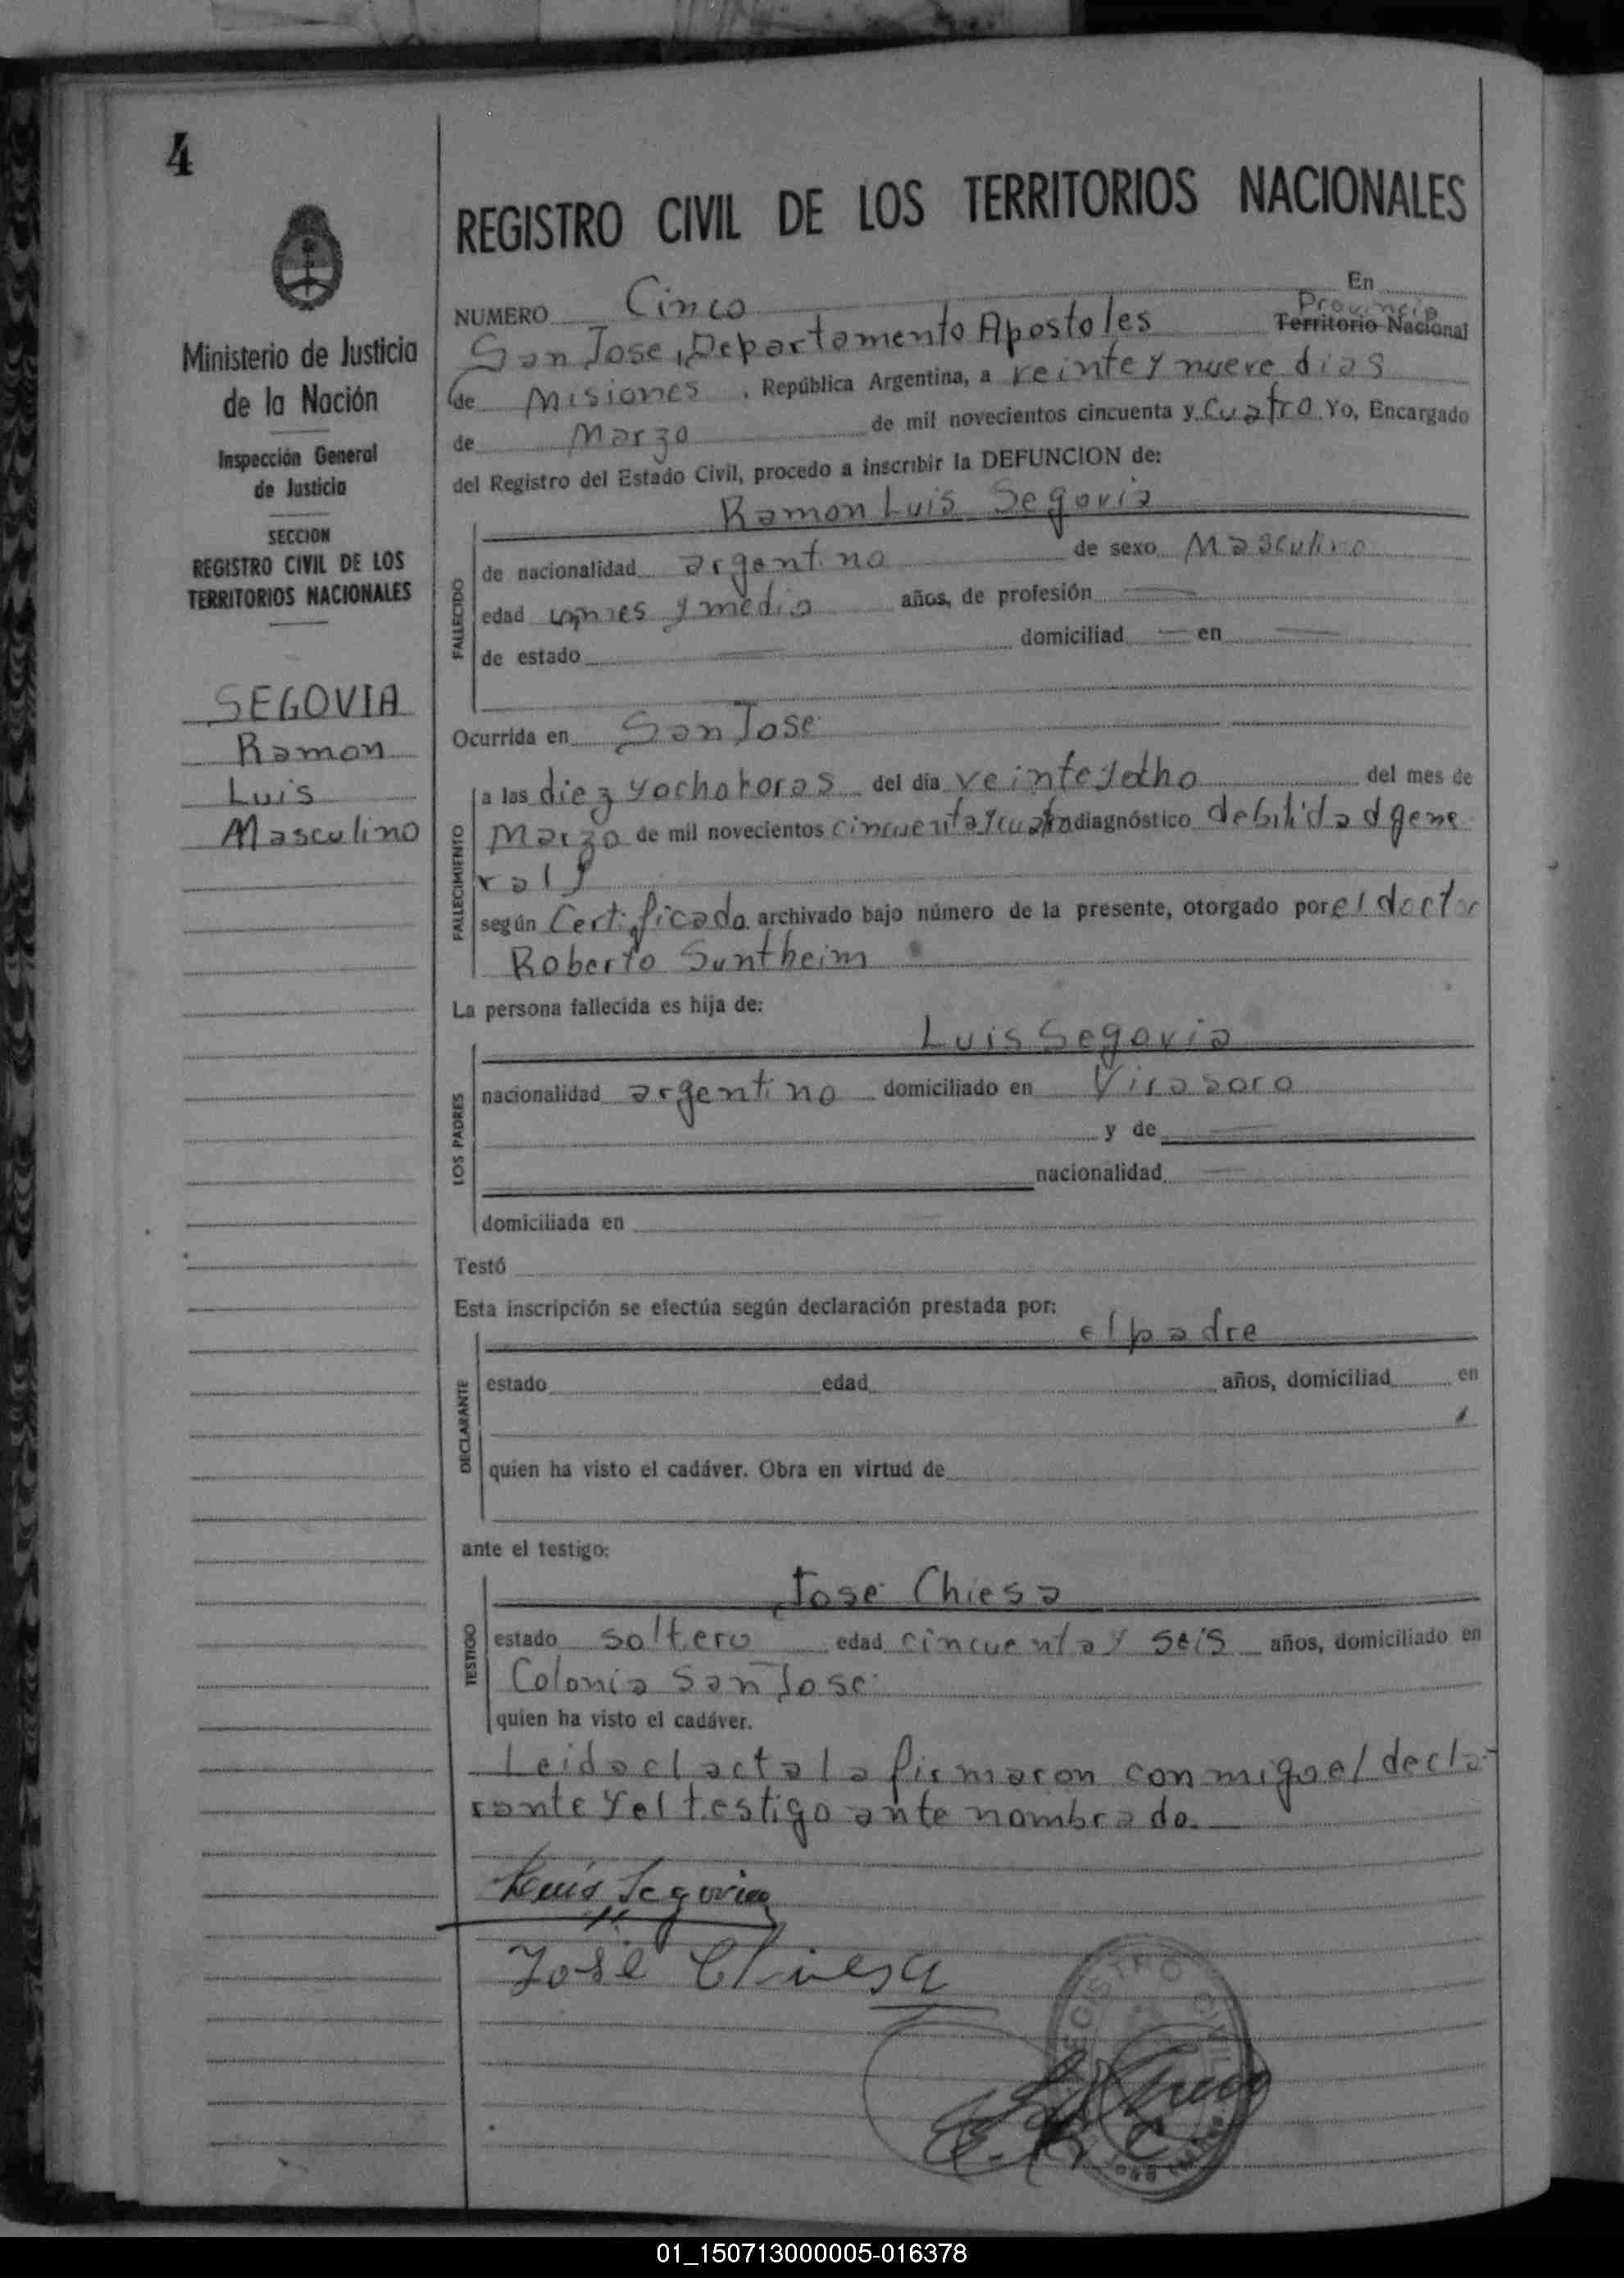 4
Ministerio de Justicia
de la Nación
Inspección General
de Justicia
SECCION
REGISTRO CIVIL DE LOS
TERRITORIOS NACIONALES
SEGOVIA
Ramon
Luis
Masculino
REGISTRO CIVIL DE LOS TERRITORIOS NACIONALES
NUMERO Cinco En
San Jose, Departamento Apostoles Provincia Territorio Nacional
de Misiones, República Argentina, a veinte y nueve dias
de Marzo de mil novecientos cincuenta y cuatro Yo, Encargado
del Registro del Estado Civil, procedo a inscribir la DEFUNCION de:
Ramon Luis Segovia
FALLECIDO
de nacionalidad argentino de sexo Masculino
edad un mes y medio años, de profesión —
de estado — domiciliad — en —
Ocurrida en San Jose
FALLECIMIENTO
a las diez y ocho horas del día veinte y ocho del mes de
Marzo de mil novecientos cincuenta y cuatro diagnóstico debilidad gene
ral
según Certificado archivado bajo número de la presente, otorgado por el doctor
Roberto Suntheim
La persona fallecida es hija de:
LOS PADRES
Luis Segovia
nacionalidad argentino domiciliado en Virasoro
y de —
nacionalidad —
domiciliada en
Testó
Esta inscripción se efectúa según declaración prestada por:
DECLARANTE
el padre
estado edad años, domiciliad en
quien ha visto el cadáver. Obra en virtud de
ante el testigo:
TESTIGO
Jose Chiesa
estado soltero edad cincuenta y seis años, domiciliado en
Colonia San Jose
quien ha visto el cadáver.
Leida el acta la firmaron conmigo el decla-
rante y el testigo ante nombrado.
Luis Segovia
José Chiesa
REGISTRO CIVIL
01_150713000005-016378